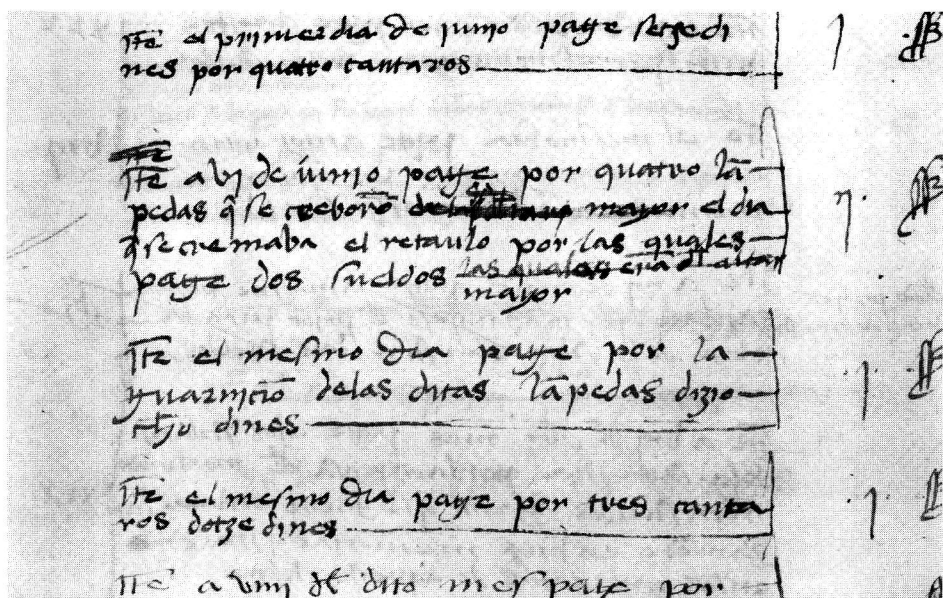 Ité el primer dia de junio page setzedi
nes por quatro cantaros j
Ité a vj de junio page por quatro lā
pedas q̄ se creborō mayor el dia
q̄ se cremaba el retaulo por las quales
page dos sueldos las quales erā dl altar
mayor
Ité el mesmo dia page por la j
guarniciō delas ditas lāpedas dizio
cho dines
Ité el mesmo dia page por tres canta j
ros dotze dines
Ité a viiij dl dito mes page por